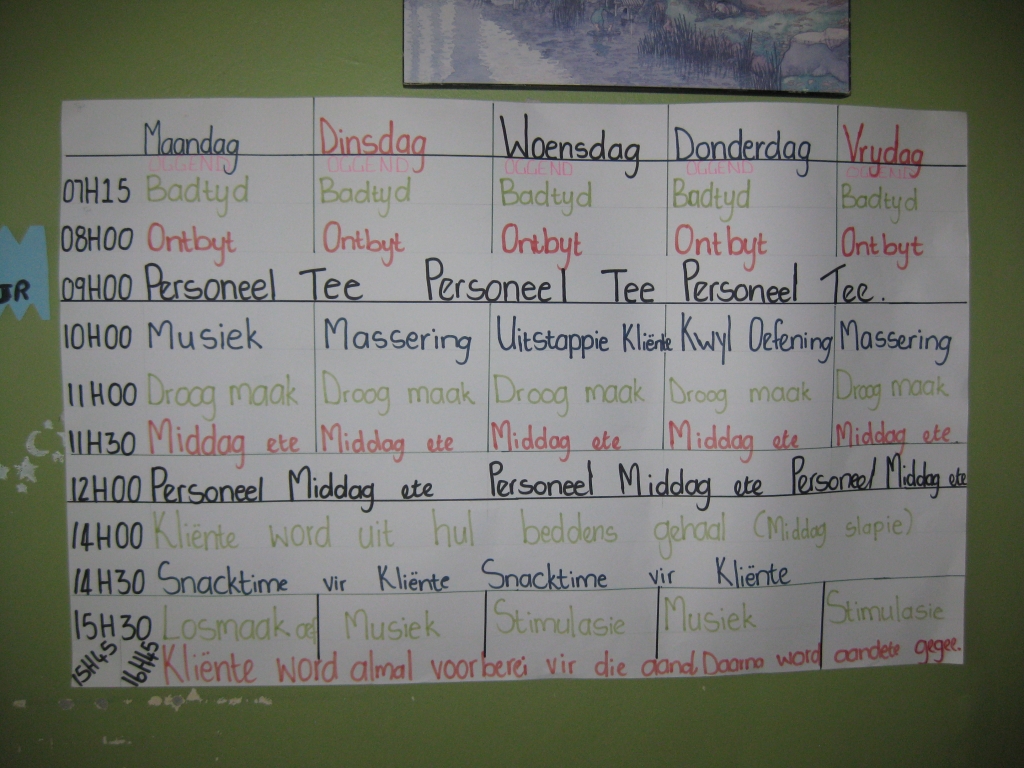 Maandag Dinsdag Woensdag Donderdag Vrydag
OGGEND OGGEND OGGEND OGGEND OGGEND
07H15 Badtyd Badtyd Badtyd Badtyd Badtyd
08H00 Ontbyt Ontbyt Ontbyt Ontbyt Ontbyt
JR
09H00 Personeel Tee Personeel Tee Personeel Tee.
10H00 Musiek Massering Uitstappie Kliënte Kwyl Oefening Massering
11H00 Droog maak Droog maak Droog maak Droog maak Droog maak
11H30 Middag ete Middag ete Middag ete Middag ete Middag ete
12H00 Personeel Middag ete Personeel Middag ete Personeel Middag ete
14H00 Kliënte word uit hul beddens gehaal (Middag slapie)
14H30 Snacktime vir Kliënte Snacktime vir Kliënte
15H30 Losmaak oef Musiek Stimulasie Musiek Stimulasie
15H45 16H45 Kliënte word almal voorberei vir die aand. Daarna word aandete gegee.